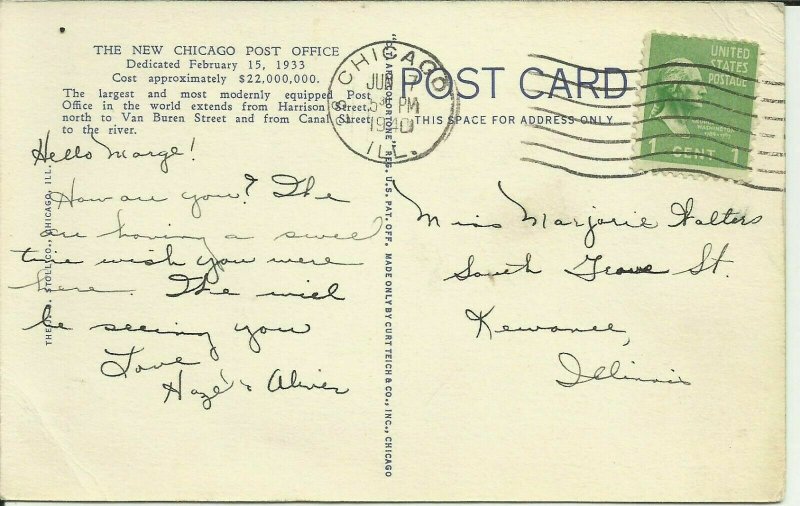 THE NEW CHICAGO POST OFFICE
Dedicated February 15, 1933
Cost approximately $22,000,000.
The largest and most modernly equipped Post
Office in the world extends from Harrison Street,
north to Van Buren Street and from Canal Street
to the river.
Hello Marge!
How are you? The
are having a swell
time wish you were
here. The will
be seeing you
Love
Hazel & Oliver
CHICAGO
JUN 7
PM
1940
ILL.
POST CARD
THIS SPACE FOR ADDRESS ONLY
UNITED
STATES
POSTAGE
WASHINGTON
1 CENT 1
Miss Marjorie Walters
South Grove St.
Kewanee,
Illinois
REG. U.S. PAT. OFF. MADE ONLY BY CURT TEICH & CO., INC., CHICAGO
STOLL CO., CHICAGO, ILL.